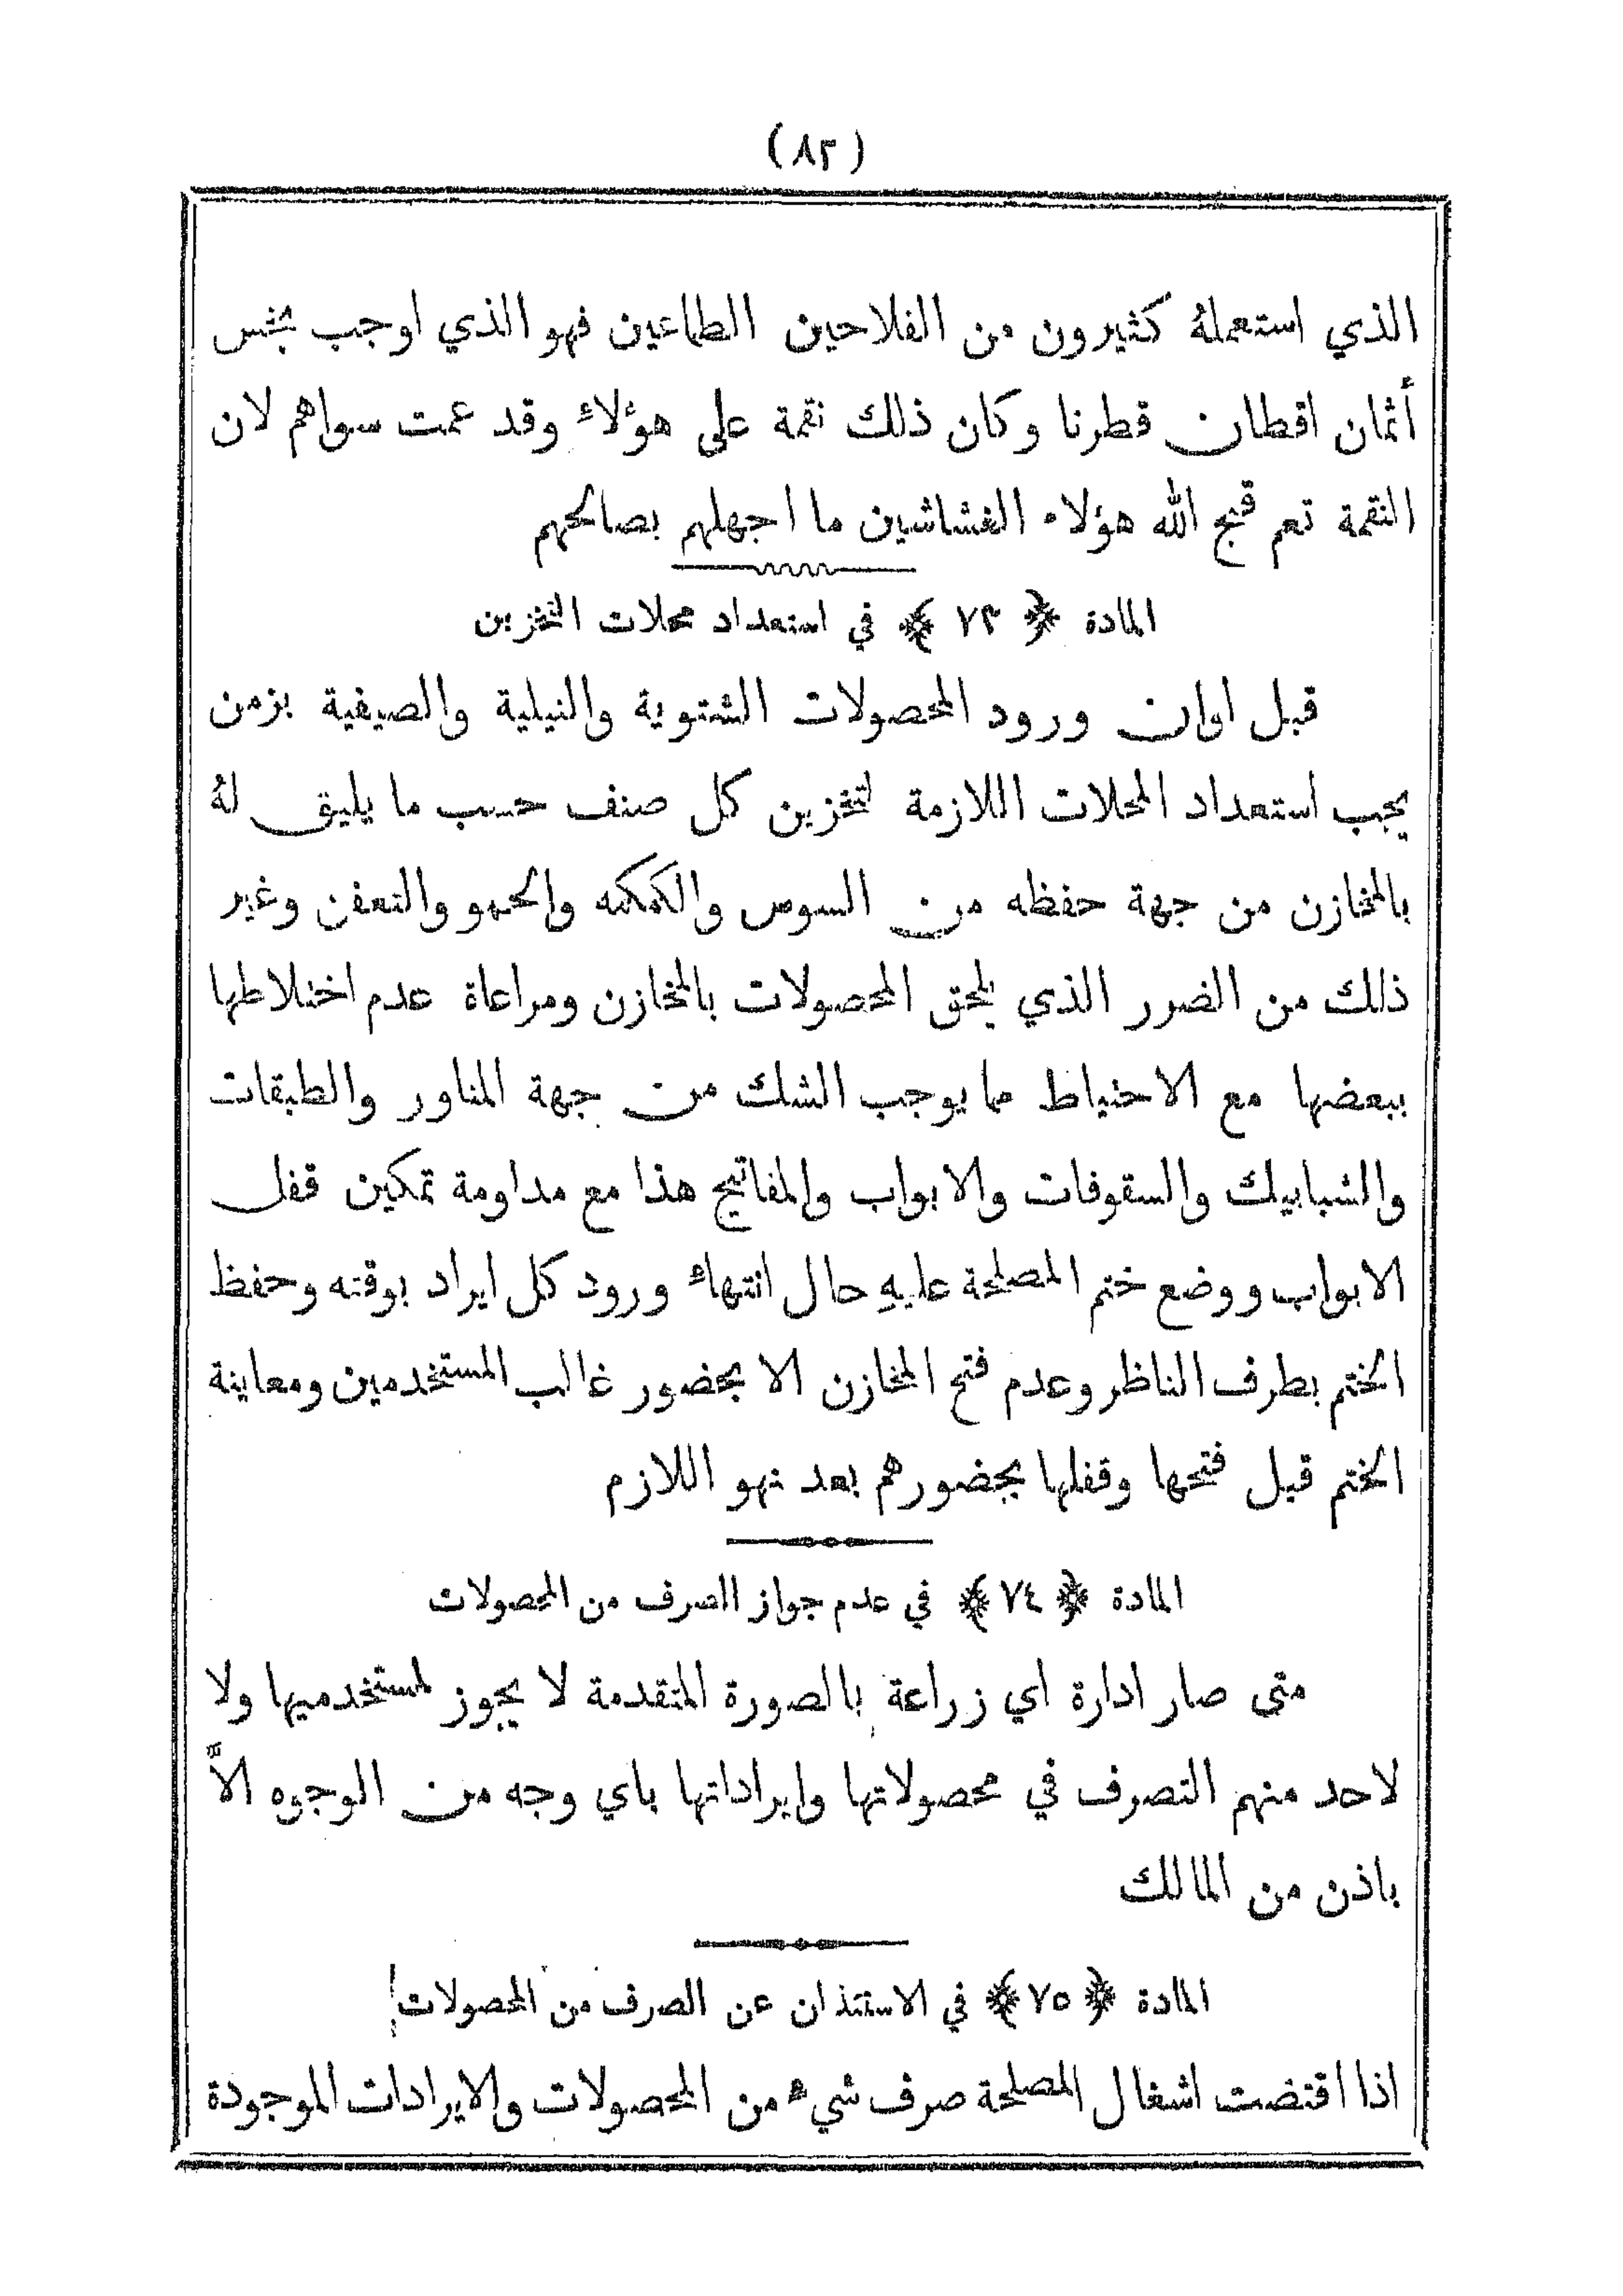 (٨٢)
الذي استعملهُ كثيرون من الفلاحين الطماعين فهو الذي اوجب بخس
أثمان اقطان قطرنا وكان ذلك نقمة على هؤلاء وقد عمت سواهم لان
النقمة تعم قبح الله هؤلاء الغشاشين ما اجهلهم بصالحهم
المادة ﴿ ٧٣ ﴾ في استعداد محلات التخزين
قبل اوان ورود المحصولات الشتوية والنيلية والصيفية بزمن
يجب استعداد المحلات اللازمة لتخزين كل صنف حسب ما يليق لهُ
بالمخازن من جهة حفظه من السوس والكمكمه والحمو والتعفن وغير
ذلك من الضرر الذي يلحق المحصولات بالمخازن ومراعاة عدم اختلاطها
ببعضها مع الاحتياط مما يوجب الشك من جهة المناور والطبقات
والشبابيك والسقوفات والابواب والمفاتيح هذا مع مداومة تمكين قفل
الابواب ووضع ختم المصلحة عليهِ حال انتهاء ورود كل ايراد بوقته وحفظ
الختم بطرف الناظر وعدم فتح المخازن الا بحضور غالب المستخدمين ومعاينة
الختم قبل فتحها وقفلها بحضورهم بعد نهو اللازم
المادة ﴿ ٧٤ ﴾ في عدم جواز الصرف من المحصولات
متى صار ادارة اي زراعة بالصورة المتقدمة لا يجوز لمستخدميها ولا
لاحد منهم التصرف في محصولاتها وايراداتها باي وجه من الوجوه الاَّ
باذن من المالك
المادة ﴿ ٧٥ ﴾ في الاستئذان عن الصرف من المحصولات
اذا اقتضت اشغال المصلحة صرف شيء من المحصولات والايرادات الموجودة